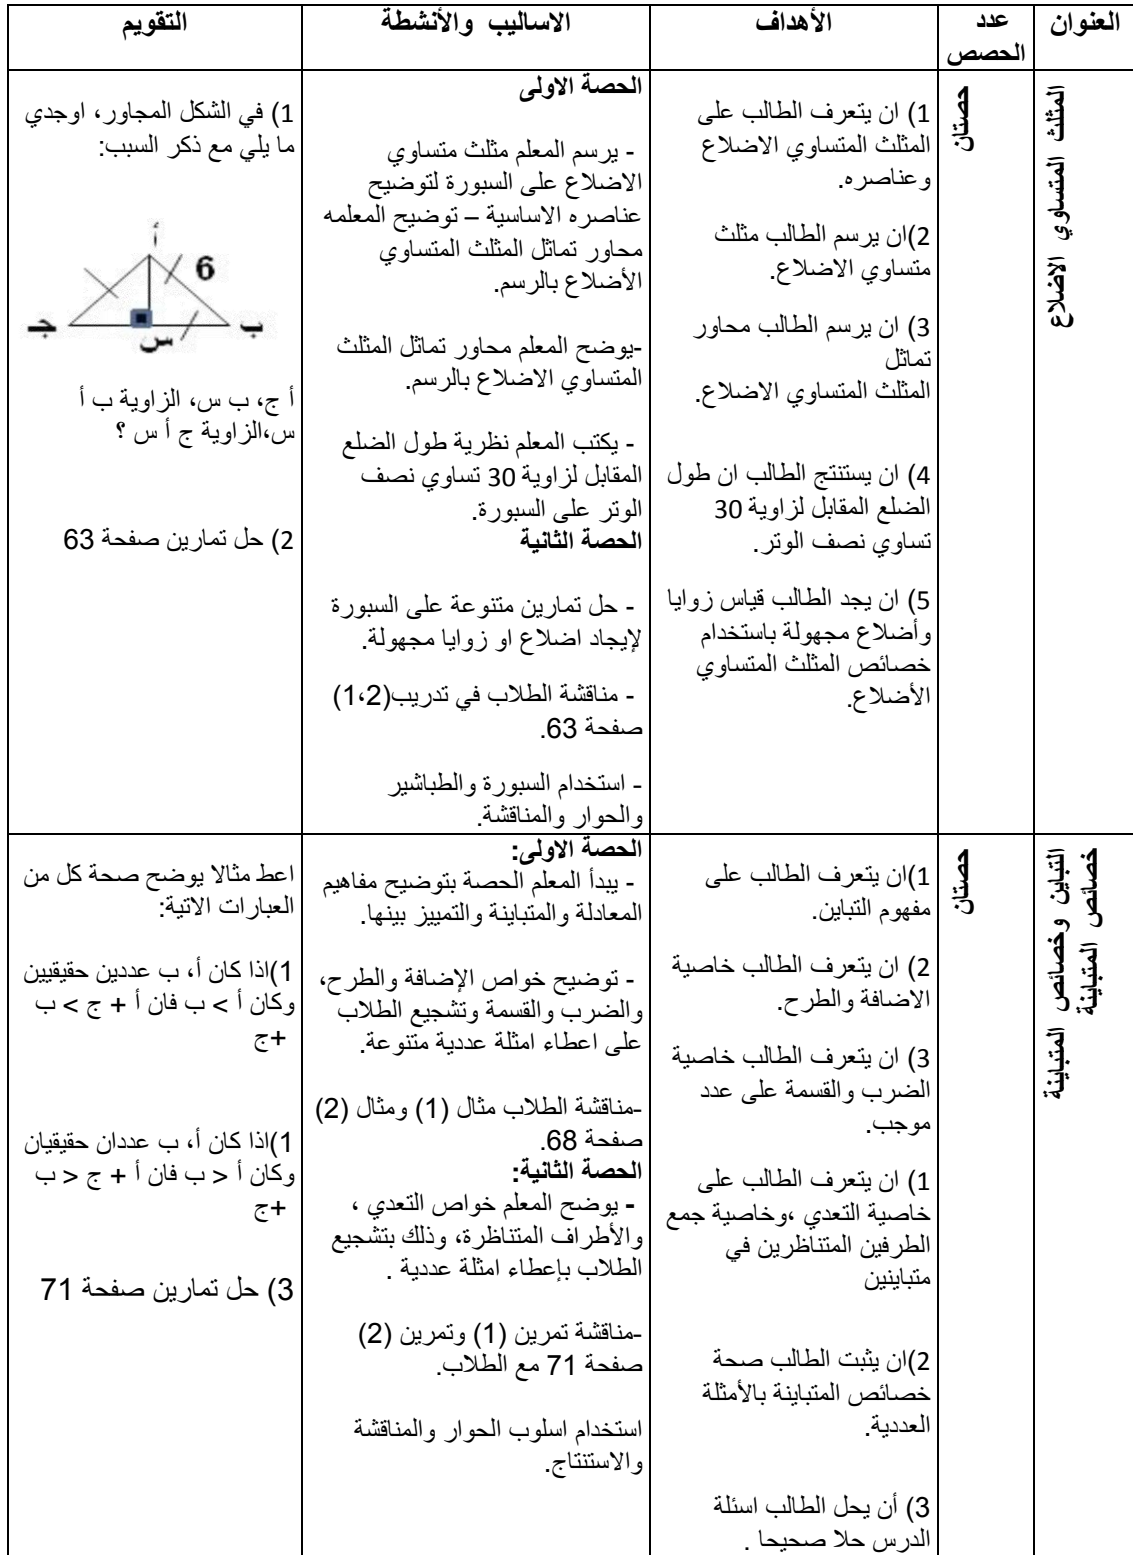 العنوان
عدد
الحصص
الأهداف
الاساليب والأنشطة
التقويم
المثلث المتساوي الاضلاع
حصتان
1) ان يتعرف الطالب على
المثلث المتساوي الاضلاع
وعناصره.
2)ان يرسم الطالب مثلث
متساوي الاضلاع.
3) ان يرسم الطالب محاور
تماثل
المثلث المتساوي الاضلاع.
4) ان يستنتج الطالب ان طول
الضلع المقابل لزاوية 30
تساوي نصف الوتر.
5) ان يجد الطالب قياس زوايا
وأضلاع مجهولة باستخدام
خصائص المثلث المتساوي
الأضلاع.
الحصة الاولى
- يرسم المعلم مثلث متساوي
الاضلاع على السبورة لتوضيح
عناصره الاساسية – توضيح المعلمه
محاور تماثل المثلث المتساوي
الأضلاع بالرسم.
-يوضح المعلم محاور تماثل المثلث
المتساوي الاضلاع بالرسم.
- يكتب المعلم نظرية طول الضلع
المقابل لزاوية 30 تساوي نصف
الوتر على السبورة.
الحصة الثانية
- حل تمارين متنوعة على السبورة
لإيجاد اضلاع او زوايا مجهولة.
- مناقشة الطلاب في تدريب(1،2)
صفحة 63.
- استخدام السبورة والطباشير
والحوار والمناقشة.
1) في الشكل المجاور، اوجدي
ما يلي مع ذكر السبب:
أ
6
جـ
ب
س
أ ج، ب س، الزاوية ب أ
س،الزاوية ج أ س ؟
2) حل تمارين صفحة 63
التباين وخصائص المتباينة
خصائص المتباينة
حصتان
1)ان يتعرف الطالب على
مفهوم التباين.
2) ان يتعرف الطالب خاصية
الاضافة والطرح.
3) ان يتعرف الطالب خاصية
الضرب والقسمة على عدد
موجب.
1) ان يتعرف الطالب على
خاصية التعدي ،وخاصية جمع
الطرفين المتناظرين في
متباينين
2)ان يثبت الطالب صحة
خصائص المتباينة بالأمثلة
العددية.
3) أن يحل الطالب اسئلة
الدرس حلا صحيحا .
الحصة الاولى:
- يبدأ المعلم الحصة بتوضيح مفاهيم
المعادلة والمتباينة والتمييز بينها.
- توضيح خواص الإضافة والطرح،
والضرب والقسمة وتشجيع الطلاب
على اعطاء امثلة عددية متنوعة.
-مناقشة الطلاب مثال (1) ومثال (2)
صفحة 68.
الحصة الثانية:
- يوضح المعلم خواص التعدي ،
والأطراف المتناظرة، وذلك بتشجيع
الطلاب بإعطاء امثلة عددية .
-مناقشة تمرين (1) وتمرين (2)
صفحة 71 مع الطلاب.
استخدام اسلوب الحوار والمناقشة
والاستنتاج.
اعط مثالا يوضح صحة كل من
العبارات الاتية:
1)اذا كان أ، ب عددين حقيقيين
وكان أ < ب فان أ + ج < ب
+ج
1)اذا كان أ، ب عددان حقيقيان
وكان أ > ب فان أ + ج > ب
+ج
3) حل تمارين صفحة 71